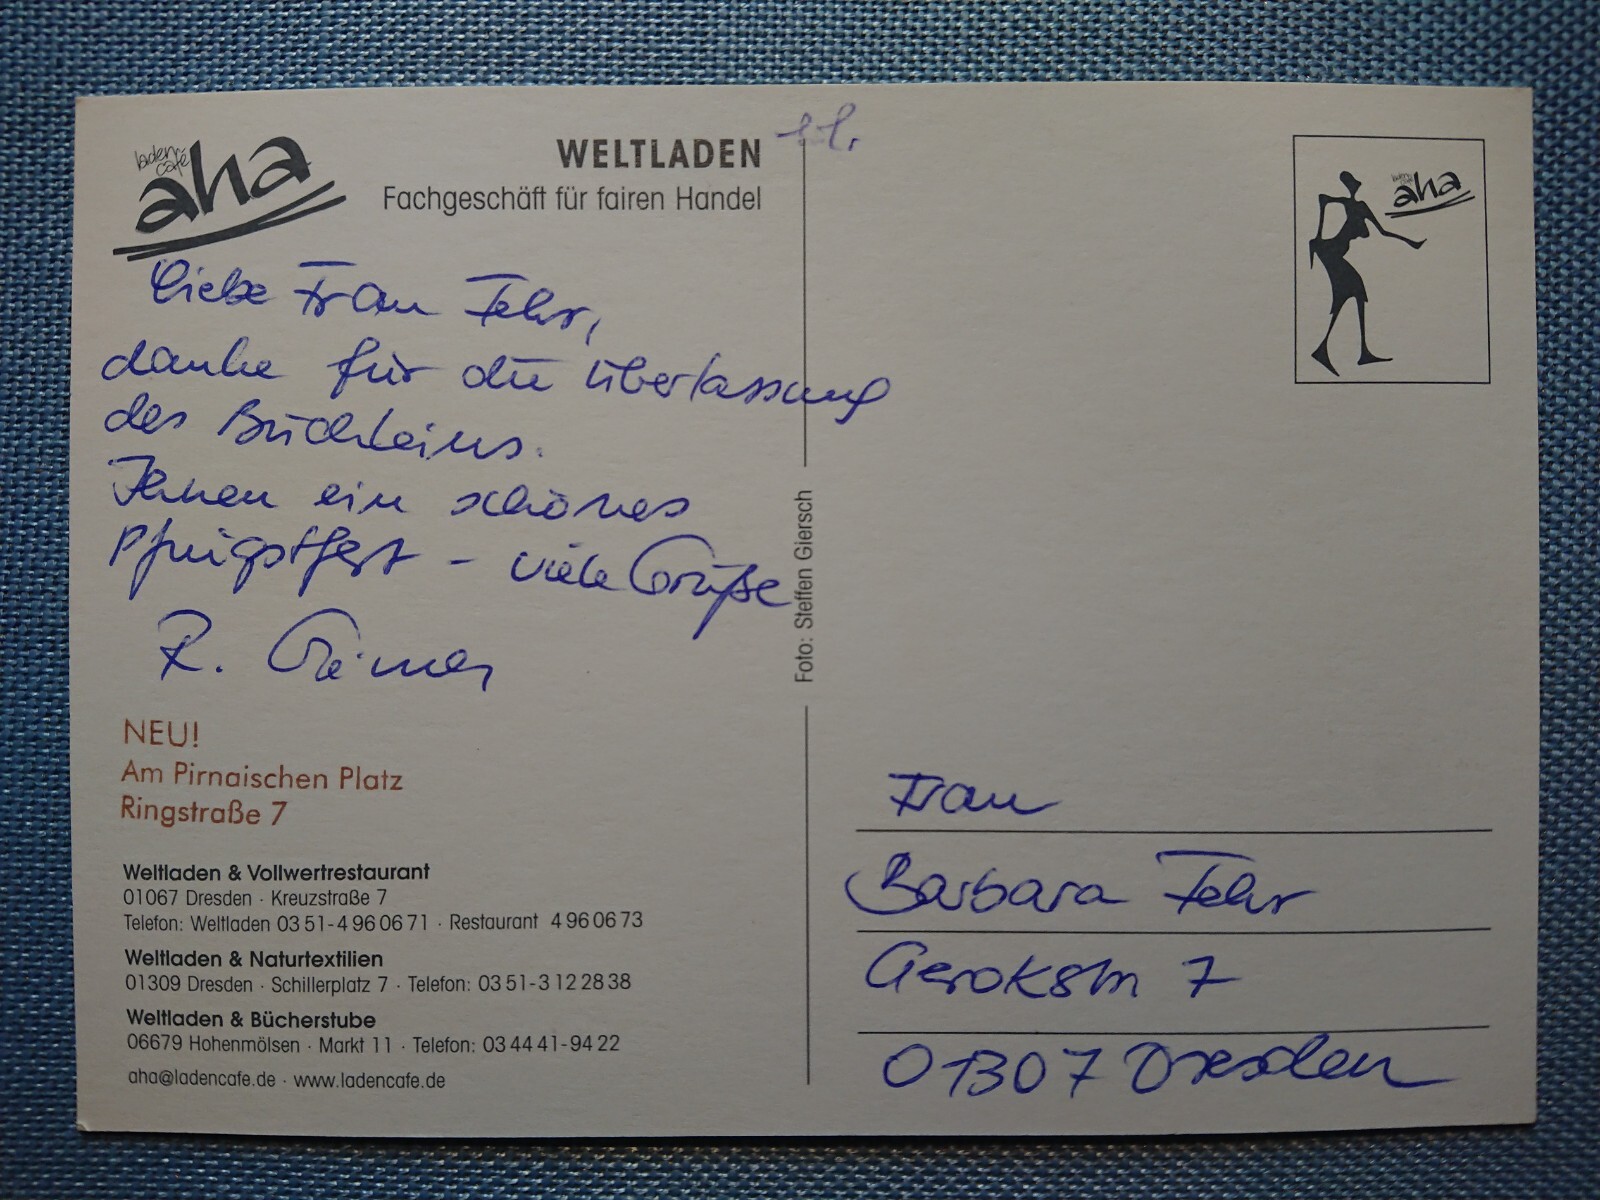 laden
café
aha
WELTLADEN
Fachgeschäft für fairen Handel
Liebe Frau Fehr,
danke für die Überlassung
des Büchleins.
Ihnen ein schönes
Pfingstfest – viele Grüße
R.
NEU!
Am Pirnaischen Platz
Ringstraße 7
Weltladen & Vollwertrestaurant
01067 Dresden · Kreuzstraße 7
Telefon: Weltladen 03 51-4 96 06 71 · Restaurant 4 96 06 73
Weltladen & Naturtextilien
01309 Dresden · Schillerplatz 7 · Telefon: 03 51-3 12 28 38
Weltladen & Bücherstube
06679 Hohenmölsen · Markt 11 · Telefon: 03 44 41-94 22
aha@ladencafe.de · www.ladencafe.de
Foto: Steffen Giersch
laden
café
aha
Frau
Barbara Fehr
Gerokstr 7
01307 Dresden